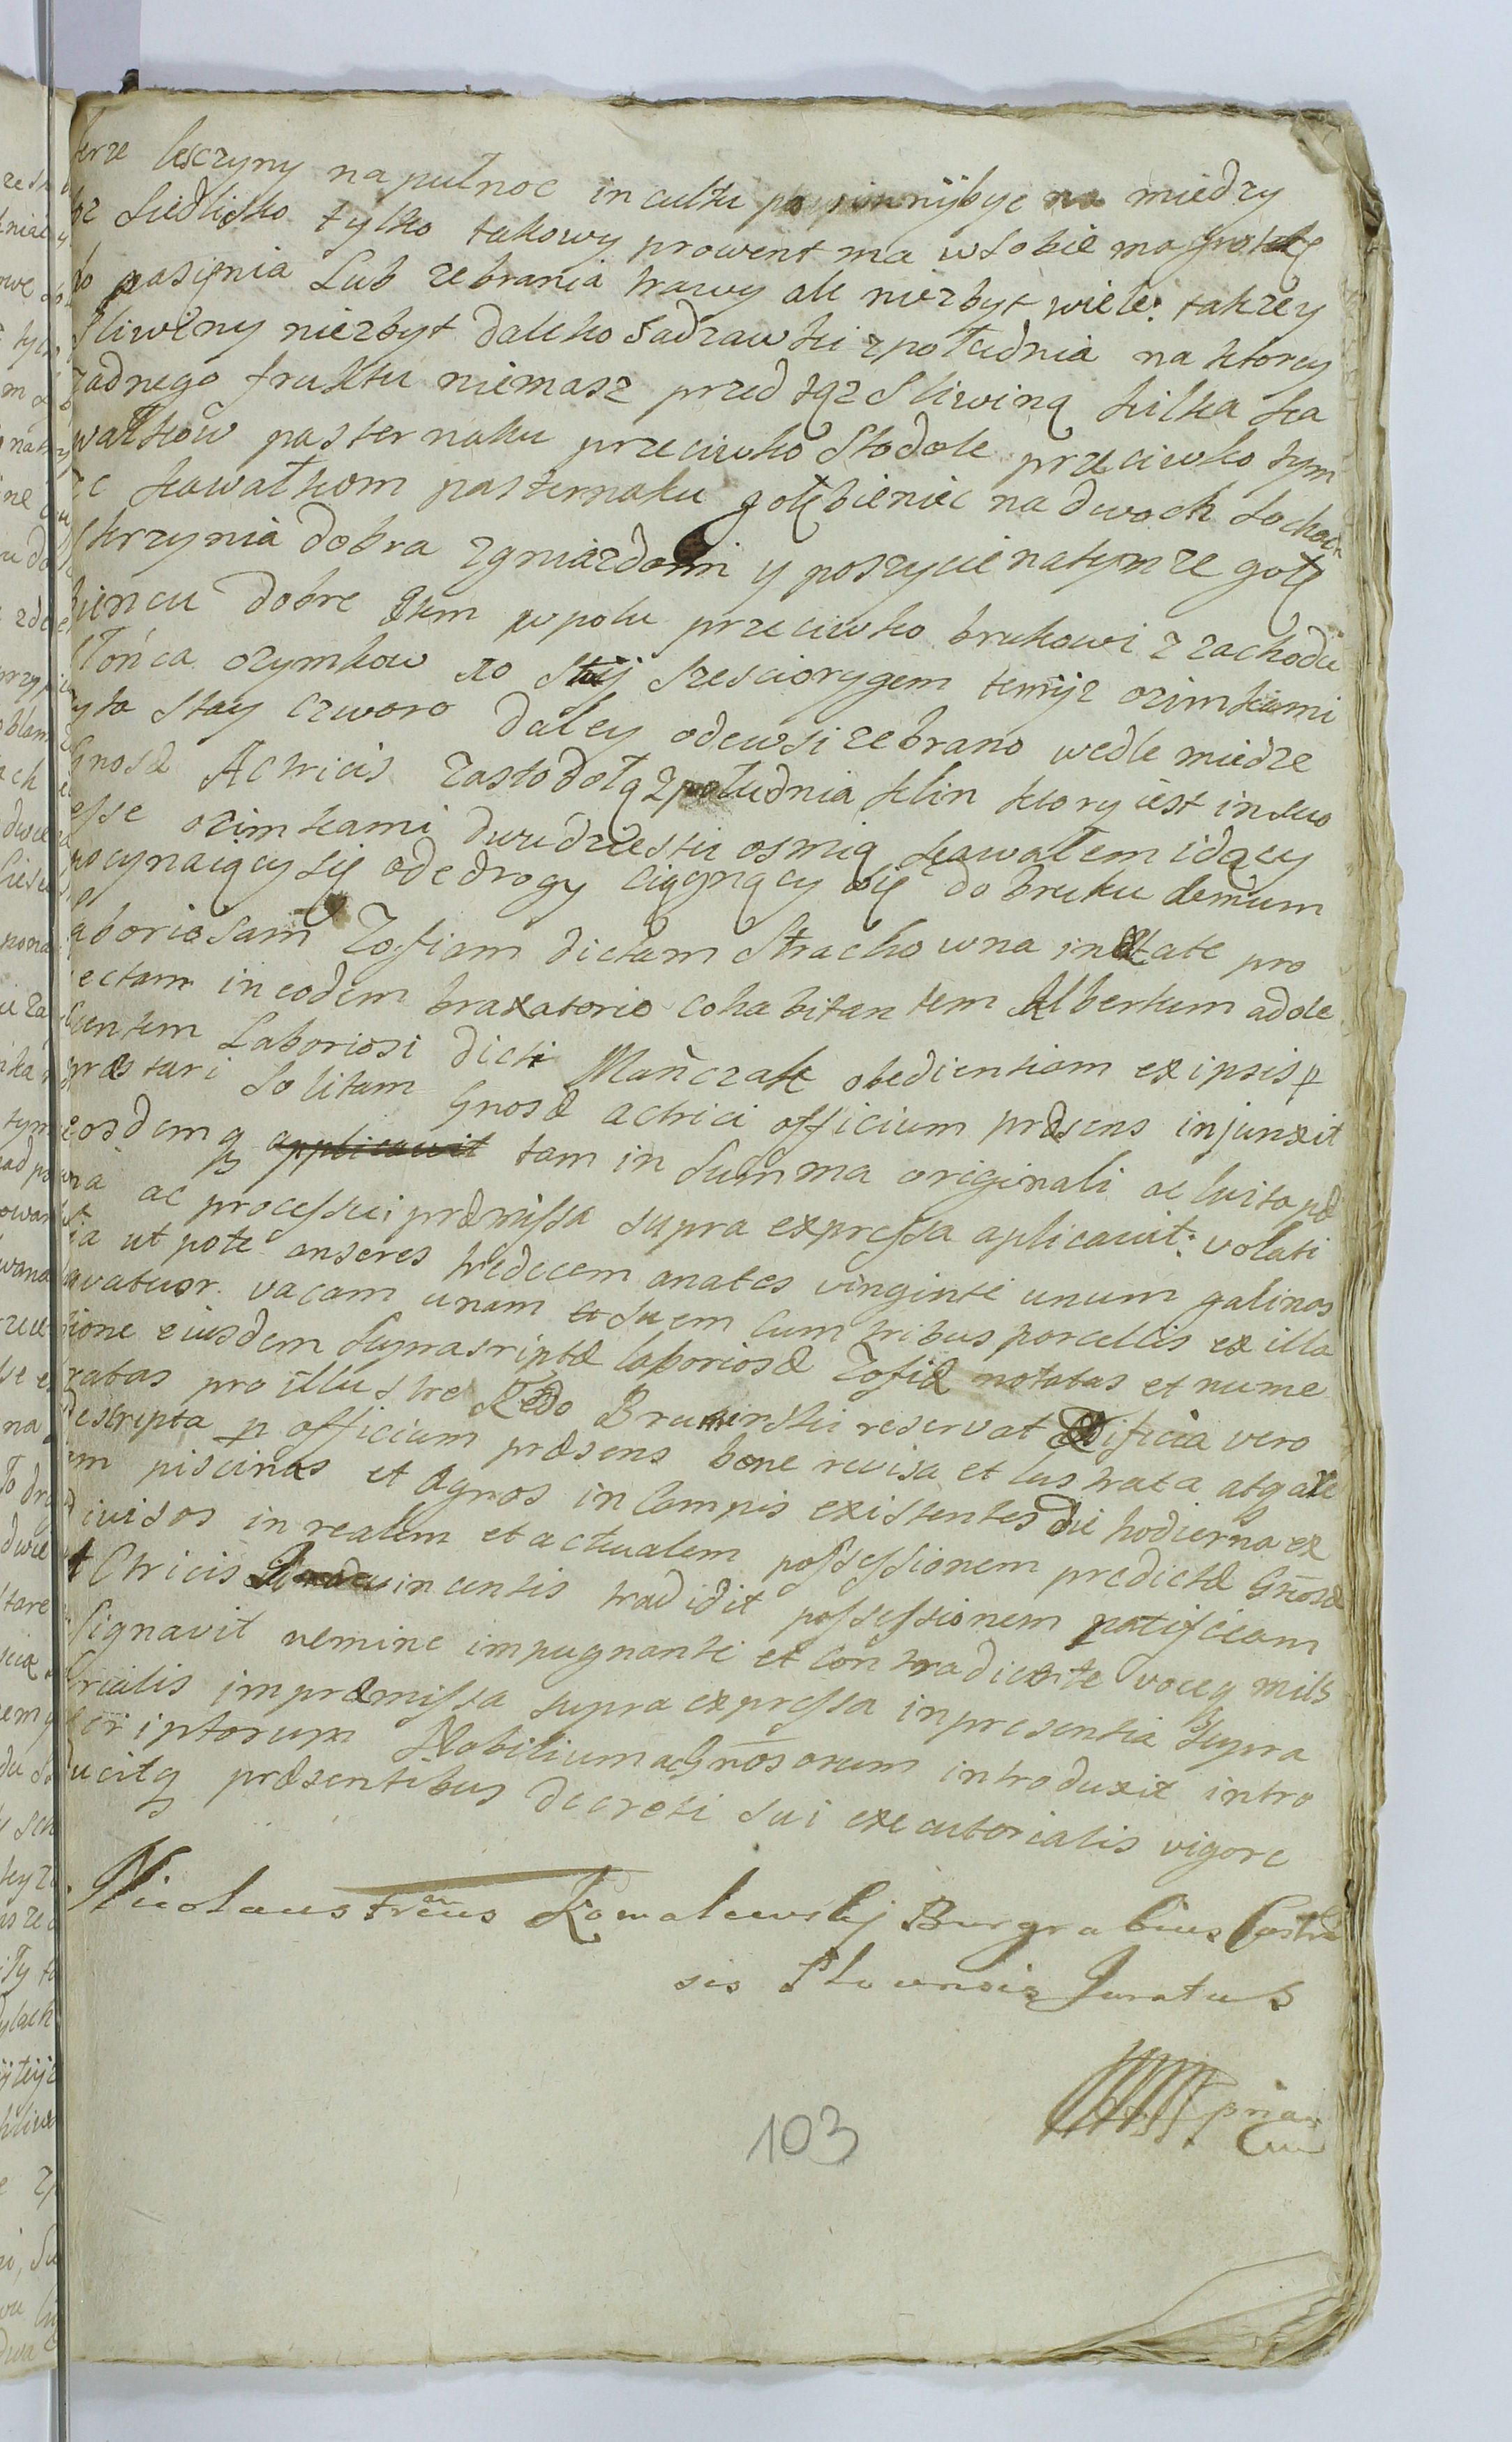 krze lesczyny napułnoc incultu po winnÿbyc na miedzy
bz Siedlisko tylko takowy prowent ma wsobie mogrodzkę
do pasięnia Lub zebrania trawy ale niezbyt wiele: takzey
Sliwiny niezbyt daleko Sadzawki zpołudnia na ktorey
zadnego fruktu niemasz przed tąz Sliwiną kilka ka
wałkow pasternaku przeciwko Stodole przeciwko tym
ze kawałkom pasternaku gołębieniec nadwoch Sochach
Skrzynia dobra zgniazdami y poszycie natymze gołę
biencu dobre Item wpolu przeciwko brukowi z zachodu
Słońca ozymkow sto Stay Szesciorygem temiz ozimkami
zyta Stay czworo daley odewsi zebrano wedle miedze
Gnosæ Actricis zastodołą zpołudnia klin ktory iest insuo
esse ozimkami dwudziestu osmią kawałem idący
pocynaiący się odedrogy ciągnący się do bruku demum
laboriosam Zofiam dictam Strachowna inætate pro
vectam ineodem braxatorio cohabitantem Albertum adole
scentem Laboriosi dicti Mańczak obedientiam exipsis p
præstari Solitam Gnosæ actrici officium præsens injunxit
eosdemq applicavit tam in Summa originali ac luitopæ
na ac processui præmissa supra expressa aplicavit: volati
lia utpote anseres tredecem anates vinginti unum galinas
quatuor vacam unam et suem cum tribus porcellis ex illa
tione eiusdem Suprascriptæ laboriosæ Zofiæ notatas et nume
ratas pro illustre Rndo Bruminski reservat Ædificia vero
descripta p officium præsens bene revisa et lustrata atq ale
um piscinas et agros in Campis existentes die hodierna ex
divisos in realem et actualem possessionem predictæ Gnosæ
Actricis incentis tradidit possessionem patificam
Signavit nemine impugnante et Contradicente voceq mils
trialis impræmissa supra expressa inpresentia Supra
scriptorum Nobilium ac Gnosorum introduxit intro
ducitq præsentibus decreti sui executorialis vigore
Nicolaus Franus Kowalewskj Burgrabius Castren
sis Plocensis Juratus
103